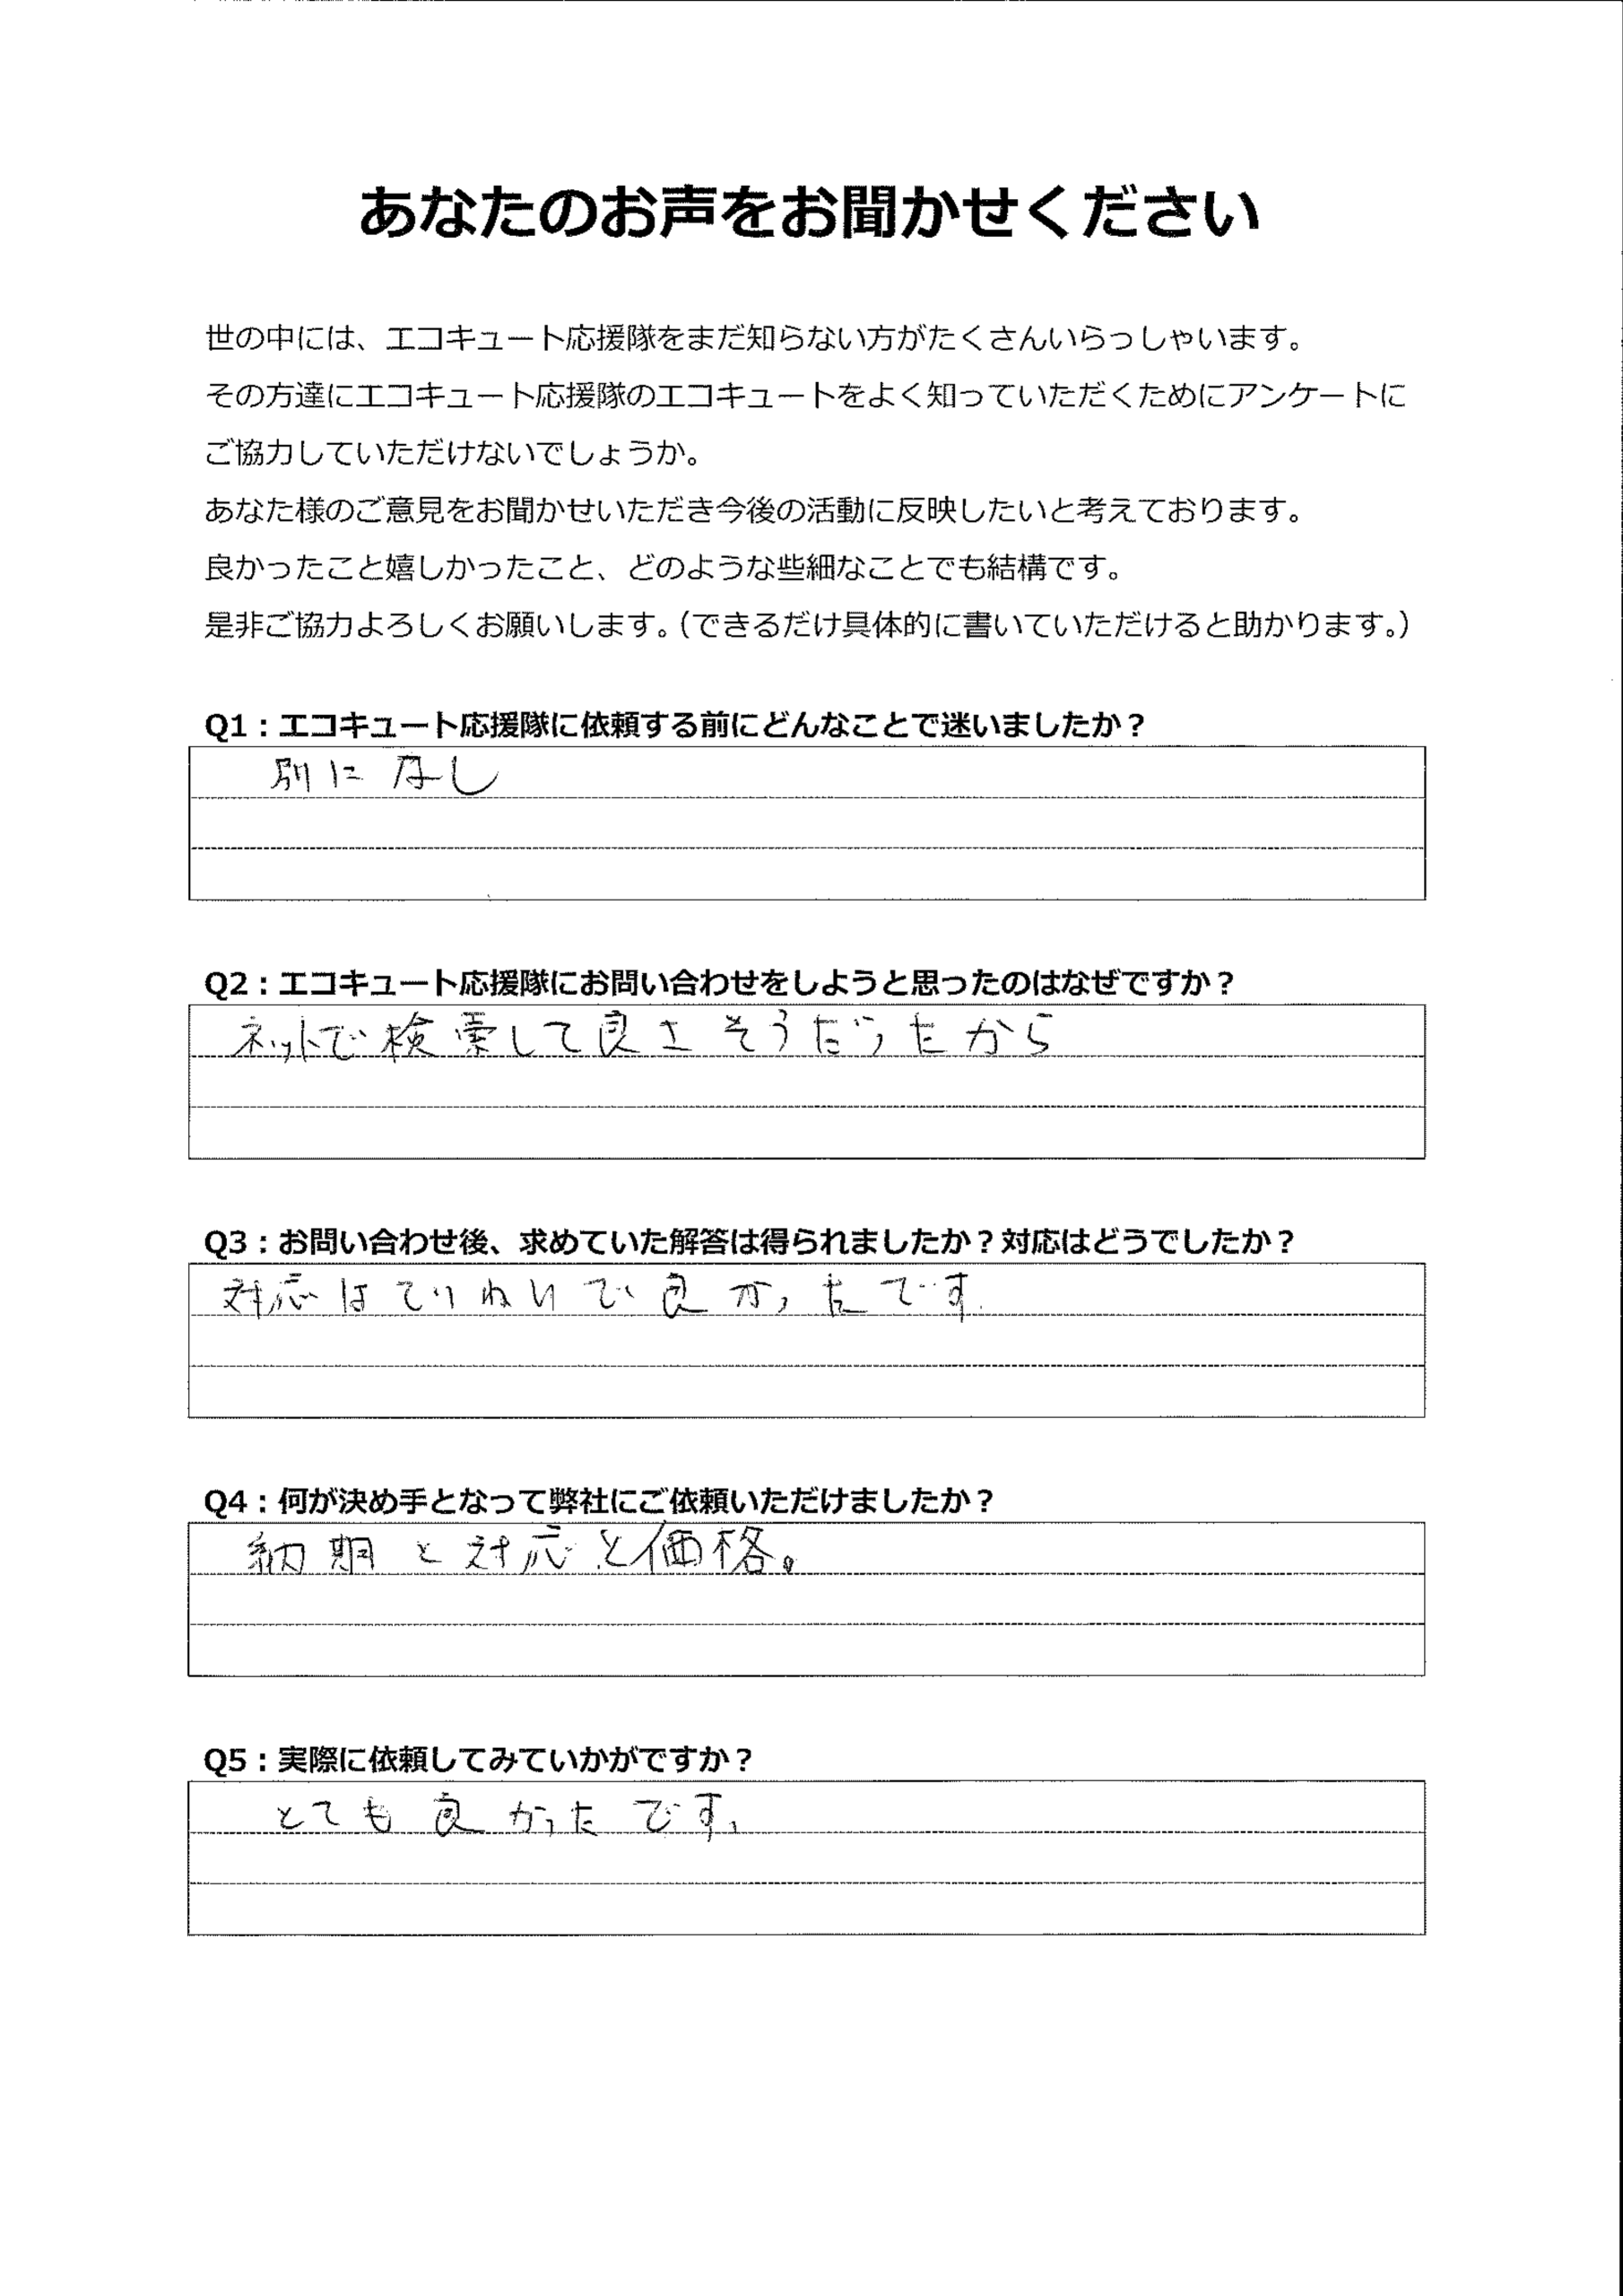 あなたのお声をお聞かせください
世の中には、エコキュート応援隊をまだ知らない方がたくさんいらっしゃいます。
その方達にエコキュート応援隊のエコキュートをよく知っていただくためにアンケートに
ご協力していただけないでしょうか。
あなた様のご意見をお聞かせいただき今後の活動に反映したいと考えております。
良かったこと嬉しかったこと、どのような些細なことでも結構です。
是非ご協力よろしくお願いします。（できるだけ具体的に書いていただけると助かります。）
Q1：エコキュート応援隊に依頼する前にどんなことで迷いましたか？
別になし
Q2：エコキュート応援隊にお問い合わせをしようと思ったのはなぜですか？
ネットで検索して良さそうだったから
Q3：お問い合わせ後、求めていた解答は得られましたか？対応はどうでしたか？
対応はていねいで良かったです.
Q4：何が決め手となって弊社にご依頼いただけましたか？
納期と対応と価格。
Q5：実際に依頼してみていかがですか？
とても良かったです、